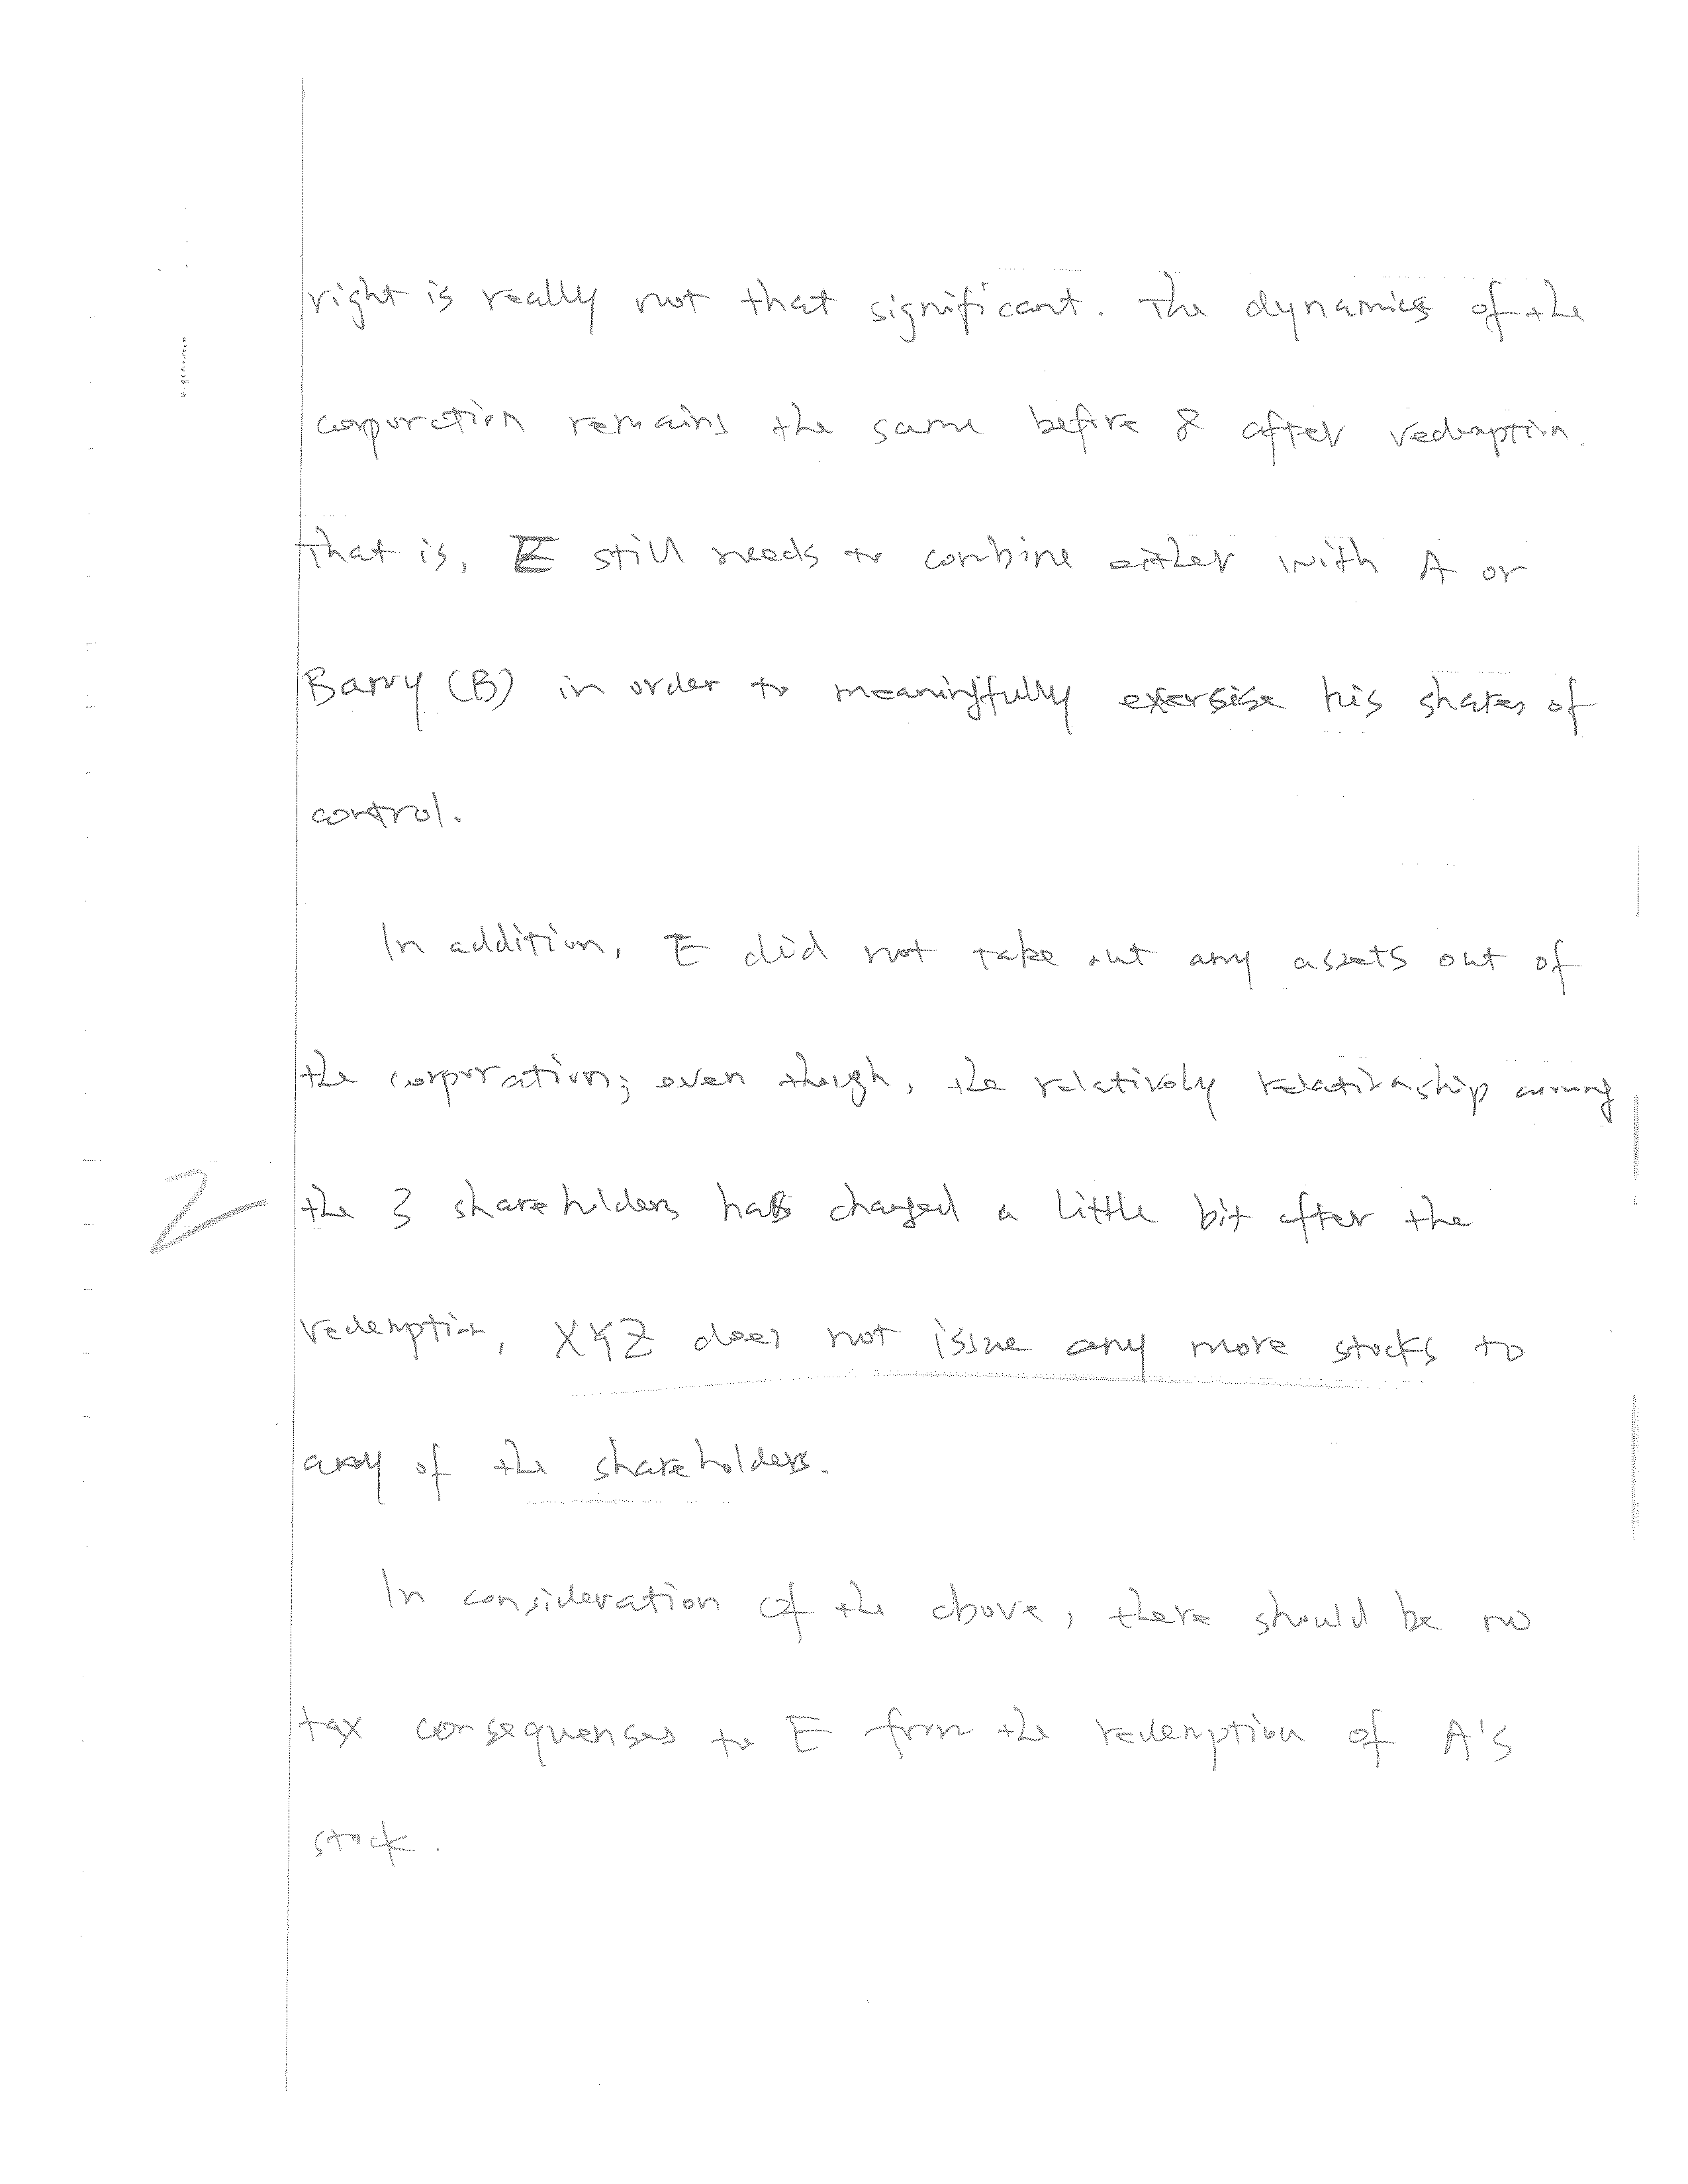 right is really not that significant. The dynamics of the
corporation remains the same before & after redemption.
That is, E still needs to combine either with A or
Barry (B) in order to meaningfully exersise his shares of
control.
In addition, E did not take out any assets out of
the corporation; even though, the relatively relationship among
2
the 3 shareholders has changed a little bit after the
redemption, XYZ does not issue any more stocks to
any of the shareholders.
In consideration of the above, there should be no
tax consequenses to E from the redemption of A's
stock.